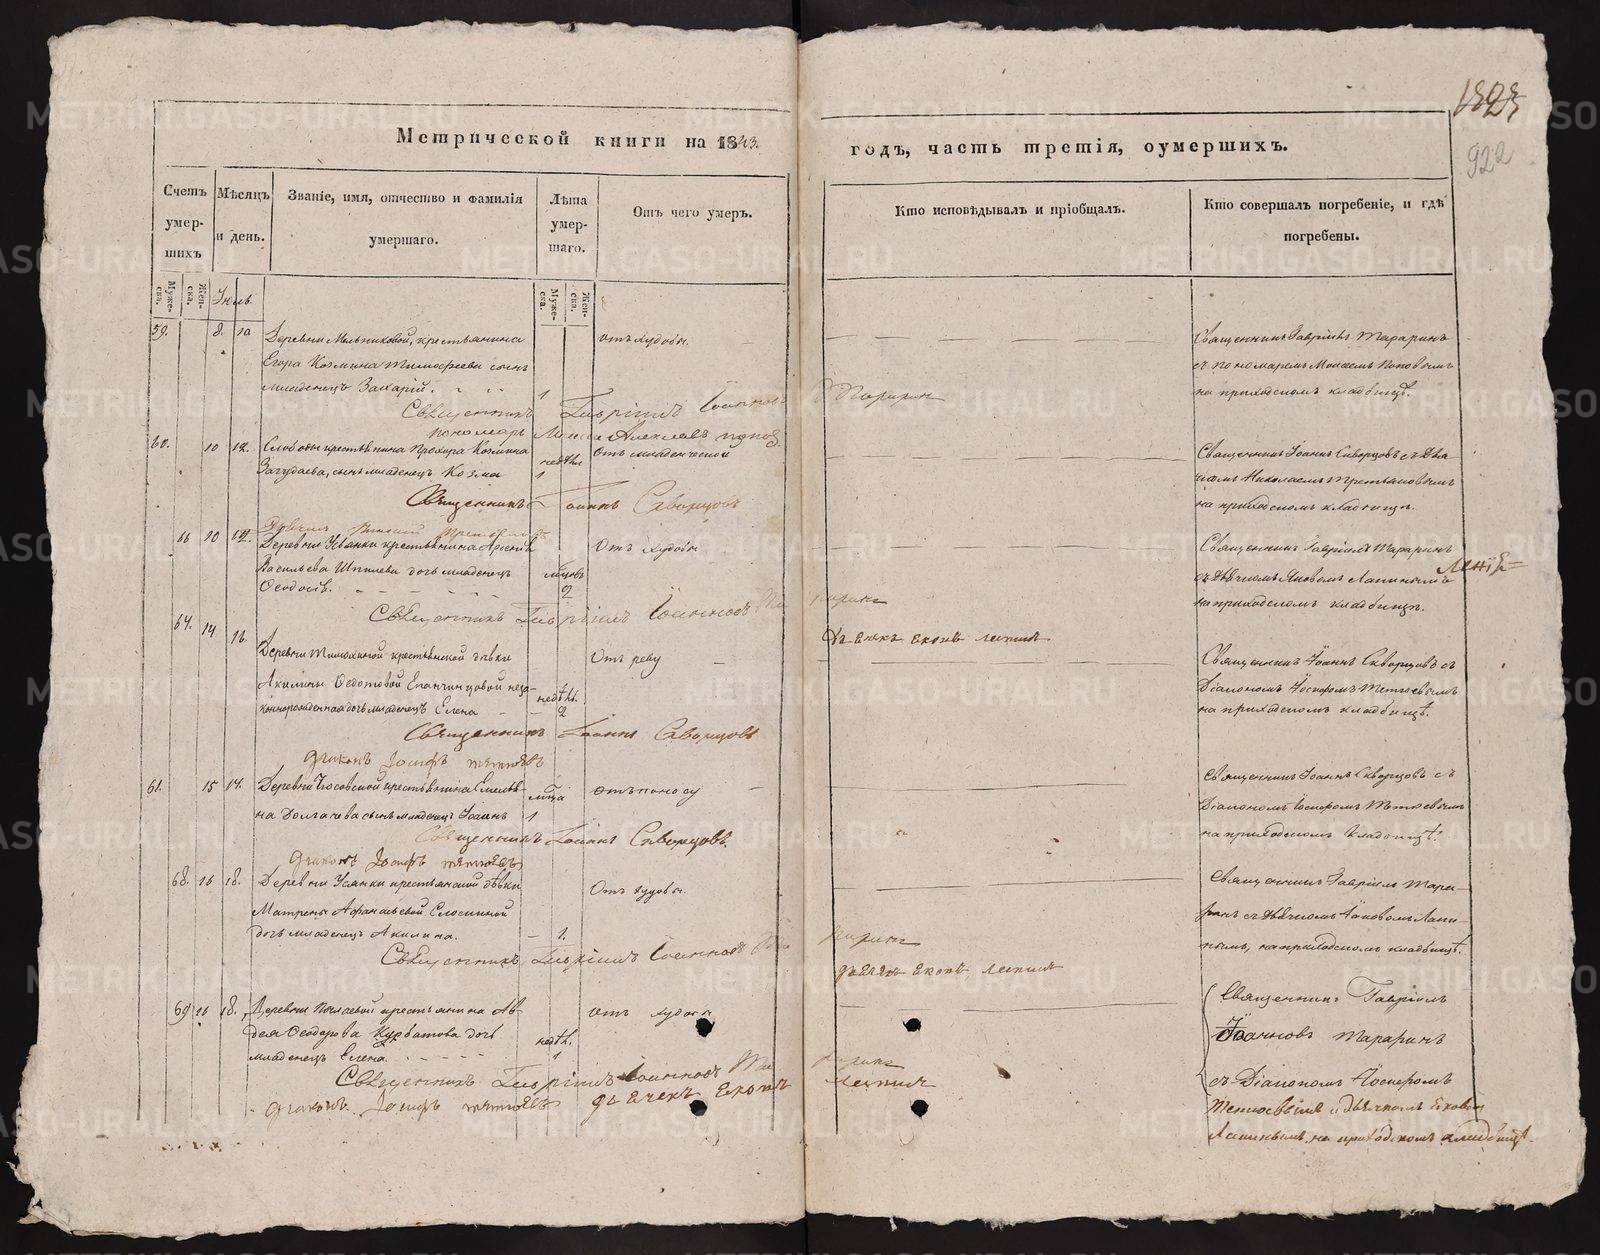 Метрической книги на 1843.
годъ, часть третія, оумершихъ.
1323
922
Счетъ умер-шихъ
Мѣсяцъ и день.
Званіе, имя, отчество и фамилія умершаго.
Лѣта умер-шаго.
Отъ чего умеръ.
Кто исповѣдывалъ и пріобщалъ.
Кто совершалъ погребеніе, и гдѣ погребены.
Муже-ска.
Жен-ска.
Іюль
Муже-ска.
Жен-ска.
59. 8. 10
Деревни Мельниковой, крестьянина
Егора Козмина Тимофеева сынъ
младенецъ Захарій.
1
отъ худобы.
Священникъ Гавріилъ Тараринъ
съ пономаремъ Моисеемъ Поповымъ
на приходскомъ кладбищѣ.
Священникъ Гавріилъ Іоанновъ Тараринъ
пономарь
60. 10 12.
Слободы крестьянина Прохора Козмина
Загудаева, сынъ младенецъ Козма
недѣль
1
отъ младенческой
Священникъ Іоаннъ Скворцовъ съ дья
чкомъ Николаемъ Третьяковымъ
на приходскомъ кладбищѣ.
Священникъ Іоаннъ Скворцовъ
66 10 12.
Деревни Усьянки крестьянина
Васильева Шпилева дочь младенецъ
Ѳеодосія.
2
Отъ худобы
Священникъ Гавріилъ Тараринъ
съ дьячкомъ Яковомъ Лапинымъ
на приходскомъ кладбищѣ.
Священникъ Гавріилъ Іоанновъ Тараринъ
дьячекъ Яковъ Лапинъ
67. 14 16.
Деревни Тимохиной крестьянской дѣвки
Акилины Ѳедотовой Епанчинцовой неза-
коннорожденная дочь младенецъ Елена
недѣль.
2
Отъ реву
Священникъ Іоаннъ Скворцовъ съ
Діакономъ Іосифомъ
на приходскомъ кладбищѣ.
Священникъ Іоаннъ Скворцовъ
Діаконъ Іосифъ
61. 15 17.
Деревни Чосовской крестьянина Емелья-
на Долгачева сынъ младенецъ Іоаннъ
1
отъ поносу
Священникъ Іоаннъ Скворцовъ съ
Діакономъ Іосифомъ
на приходскомъ кладбищѣ.
Священникъ Іоаннъ Скворцовъ.
Діаконъ Іосифъ
68. 16 18.
Деревни Усянки крестьянской дѣвки
Матрены Афанасьевой
дочь младенецъ Акилина.
1.
Отъ худобы.
Священникъ Гавріилъ Тара-
ринъ съ дьячкомъ Іаковомъ Лапи-
нымъ, на приходскомъ кладбищѣ.
Священникъ Гавріилъ Іоанновъ Тараринъ
дьячекъ Яковъ Лапинъ
69 16 18.
Деревни крестьянина Ав-
дея Ѳеодорова Курбатова дочь
младенецъ Елена.
недѣль.
1
отъ худобы
Священникъ Гавріилъ
Іоанновъ Тараринъ
съ Діакономъ Іосифомъ
и дьячкомъ Яковомъ
Лапинымъ, на приходскомъ кладбищѣ.
Священникъ Гавріилъ Іоанновъ Тараринъ
Діаконъ Іосифъ дьячекъ Яковъ Лапинъ
METRIKI.GASO-URAL.RU